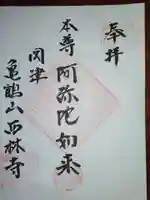 奉拝
本尊 阿弥陀如来
岡津
亀鶴山西林寺